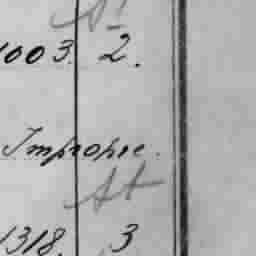 1003. 2.
Improprie.
At
1318. 3